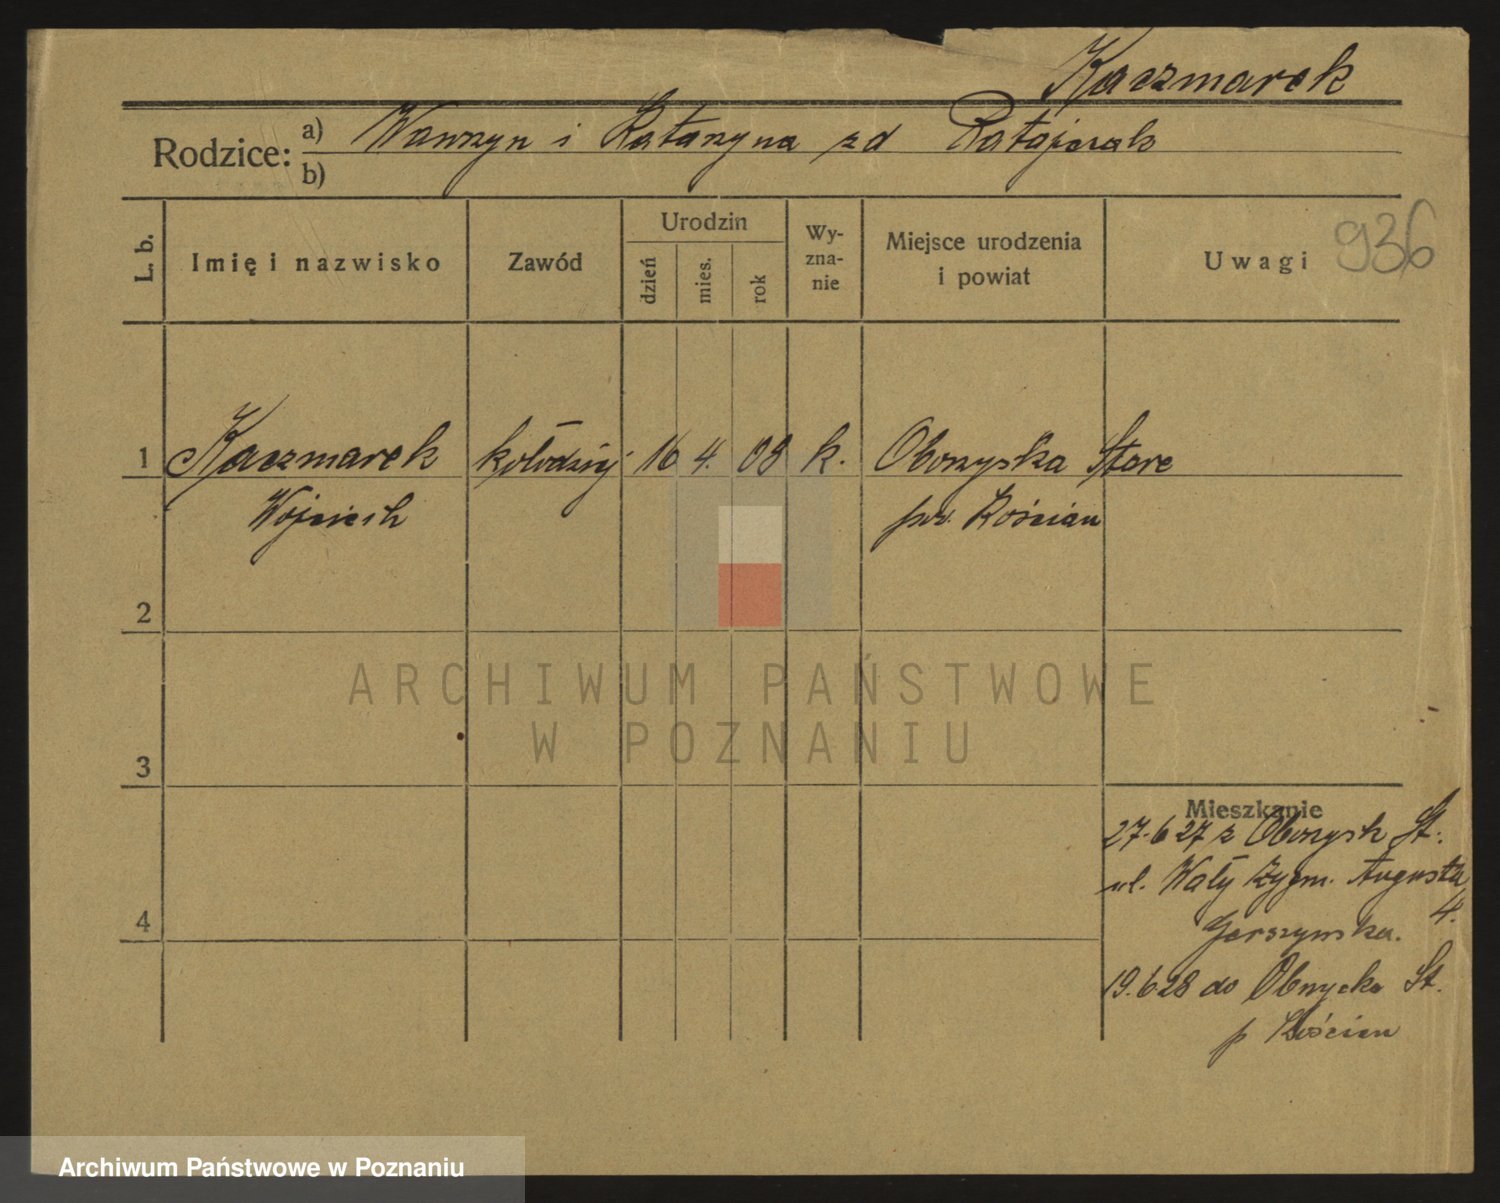 Kaczmarek
Rodzice: a) Wawrzyn i Katarzyna zd Ratajczak
b)
L. b. Imię i nazwisko Zawód Urodzin dzień mies. rok Wy-zna-nie Miejsce urodzenia i powiat Uwagi 936
1 Kaczmarek kołodziej 16 4. 08 k. Obrzyska Stare
Wojciech pow. Kościan
2
ARCHIWUM PAŃSTWOWE
W POZNANIU
3
Mieszkanie
27.6 27 z Obrzysk St.
ul. Wały Zygm. Augusta
4.
4
19.6 28 do Obrzycka St.
p Kościan
Archiwum Państwowe w Poznaniu